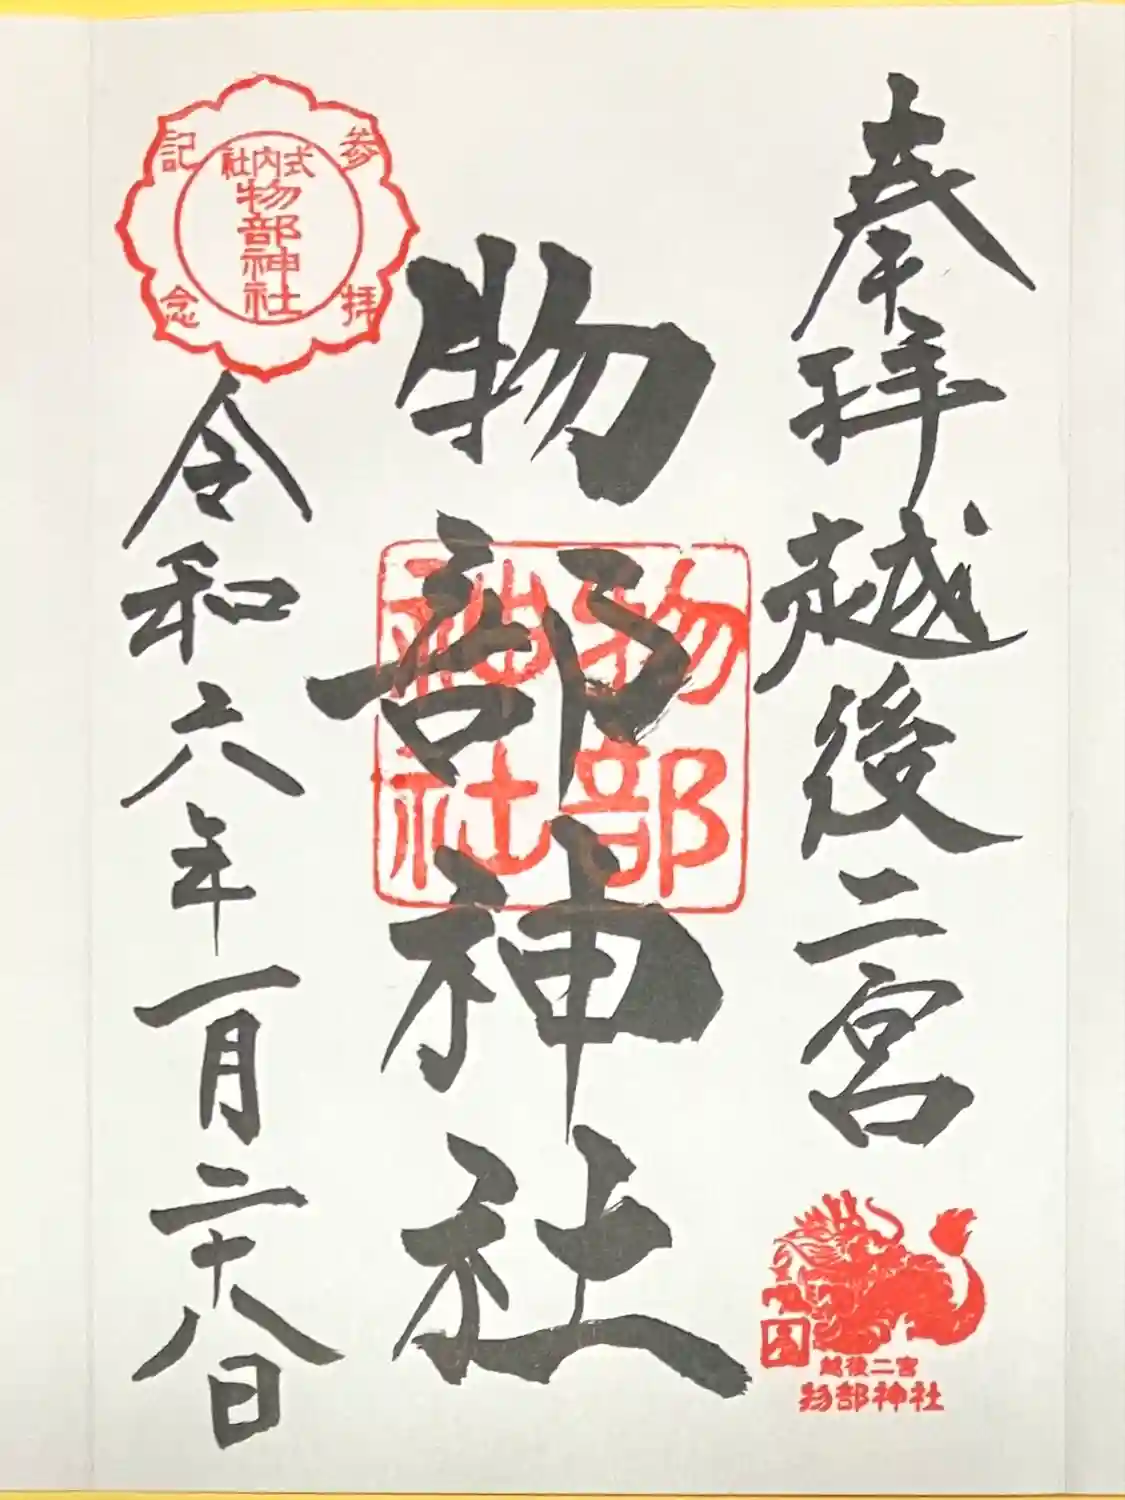 奉拝越後二宮
物部神社
令和六年一月二十八日
参拝記念
式内社
物部神社
物部
神社
越後二宮
物部神社